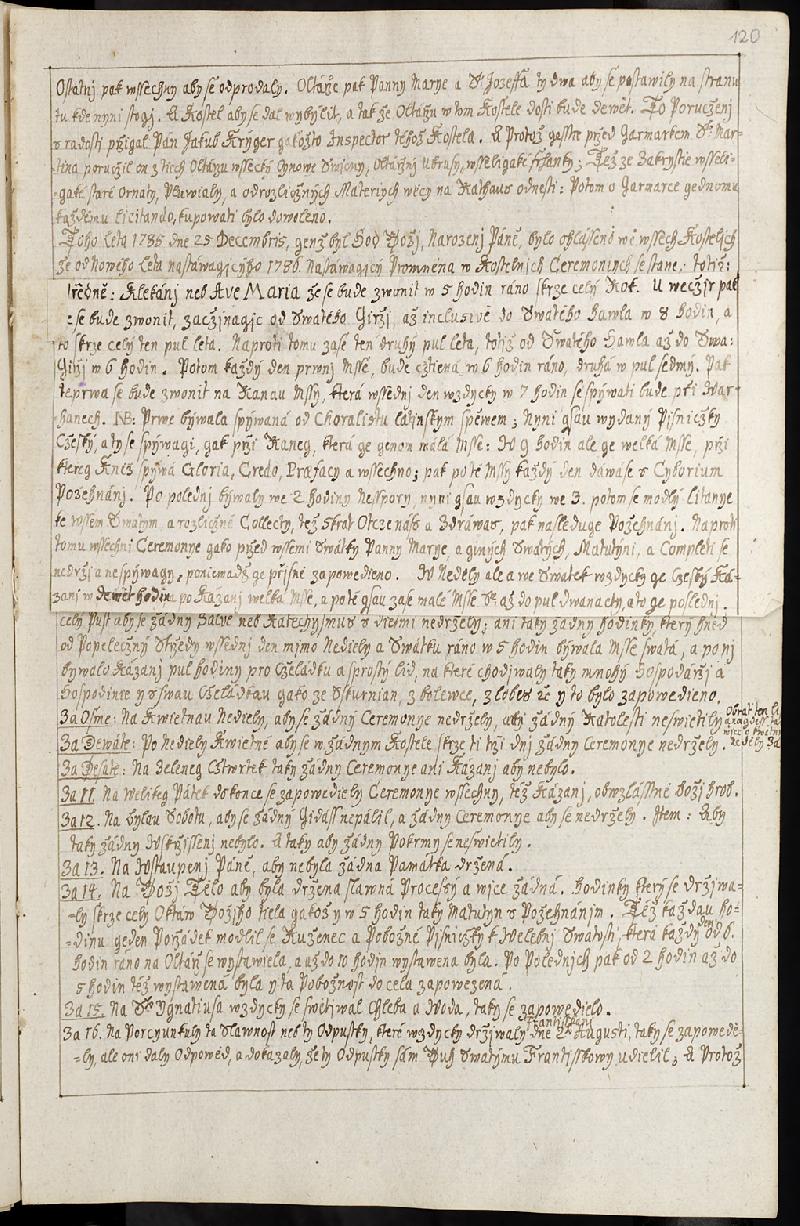 120
Ostatnj pak wssechny aby se odprodaly. Oltárže pak Panny Marye a Sv. Jozeffa ty dwa aby se postawily na stranu
tu kde nyni stogj. A Kostel aby se dal wybylit, a tak ze Oltářu w tom Kostele dosti bude dewět. To Poruczenj
s radostj pržigal Pán Jakub Krýger gakožto Inspector téhož Kostela. A Protož gesstě pržed Jarmarkem Sv. Mar-
tina poručil on z tiech Oltářu wssecky Cynowe Swícny, Oltářnj Ubrusy, wsseligaké; Též ze Sakrystie wsseli-
gaké staré Ornáty, Pluwialy, a odrozlicžných Materiých wěcy na Rathaus odnesti: Potom o Jarmarce gednomu
každému licitando, kupowati bylo dowoleno.
Toho Léta 1785 dne 25 Decembris, genž byl Hod Božj, Narozenj Páně, bylo ohlásseno we wssech Kosteljch
že od Nowého Léta nastáwagjcýho 1786. Nastáwagjcý Proměna w Kostelnjch Ceremonijch se stane: totiž:
Předně: Klekánj neb Ave Maria že se bude zwonit w 5 hodin ráno skrze celý Rok. U wecžjr pak
že se bude zwonit, začzjnagjc od Swatého Giržj, až inclusivè do Swatého Hawla w 8 hodin, a
to skrze celý ten pul léta. Naproti tomu zase ten druhý pul léta, totiž od Swatého Hawla až do Swa:
Giržj w 6 hodin. Potom každý den prwnj Msse, bude cžtená w 6 hodin ráno, druhá w pul sedmý. Pak
teprwa se bude zwonit na Ranau Mssy, která wssednj den wzdycky w 7 hodin se spjwati bude při War-
hanech. NB: Prwe býwala spjwaná od Choralistu látinským spěwem; Nyni gsau wydaný Pjsnicžky
Cžeský, a ty se spjwagi, gak prži Raneg, která ge genom malá Msse: W 9 hodin ale ge welká Msse, prži
ktereg Knež spjwá Gloria, Credo, Præfacy a wssechno; pak po té Mssy každý den dáwá se s Cyborium
Požehnánj. Po polednj býwaly we 2 hodiny Nesspory, nyni gsau wzdycky we 3. potom se modlý Litanye
ke wssem Swatým, a rozlicžné Collecty, též 5krát Otcženáss a Zdráwas, pak nasleduge Požehnánj. Naproti
tomu wssechni Ceremonye gako pržed wssemi Swátky Panny Marye, a giných Swatých, Matutýni, a Completi se
nedržj a nespjwagj, poniewadž ge přjsně zapowědieno. W Neděly ale a we Swátek wzdycky ge Cžeský Ká-
zanj w dewět hodin po Kázanj welká Msse, a poté gsau zase malé Msse Sv. až do pul dwanacty, a to ge poslednj.
celý Pust aby se žádný Salve neb Katechysmus s diemi nedržely; ani taky žádný hodinky, který hned
od Popelecžný Strjedy wssednj den mjmo Nediely a Swátku ráno w 5 hodin býwala Msse swatá, a po nj
býwalo Kázanj pul hodiny pro Cželádku a sprostý lid, na které chodjwaly taky mnohý Hospodáržj a
Hospodinie y s swau Cželádkau gako ze Sskurnian, z Bolewce, z Lobez &c y to bylo zapowedieno.
Za Osme: Na Kwietnau Nediely, aby se žádný Ceremonye nedržely, aby žádný Ratolesti neswietily
Za Dewáté: Po Nediely Kwietné aby se w žadnym Kostele skrze ti tržj dnj žádný Ceremonye nedržely.
Za Desáté: Na Zeleneg Cžtwrtek taky žádny Ceremonye ani Kázanj aby nebylo.
Za 11. Na Welikeg Pátek dokonce se zapowediely Ceremonye wssechny, též Kázanj, obwzlásstně Božj hrob.
Za 12. Na Bylau Sobotu, aby se žádný Gidáss nepálil, a žádny Ceremonye aby se nedržely. Item: Aby
taky žádný Wzkržjssenj nebylo. A taky aby žádný Pokrmy se neswietily.
Za 13. Na Wstaupenj Páně, aby nebyla žádna Památka držená.
Za 14. Na Božj Tělo aby byla držena slawná Processy a wjce žádná. Hodinky který se držjwa-
-ly skrze celý Oktaw Božjho tiela gakož y w 5 hodin taky Matutyn s Požehnánjm. Též každau ho-
-dinu geden Poržádek modlil se Ruženec a Pobožné Pjsnicžky k Welebnj Swátosti, která každý den od 6.
hodin ráno na Oltárž se wystawiela, a až do 10 hodin wystawena byla. Po Polednjch pak od 2 hodin až do
5 hodin též wystawená byla y ta Pobožnost docela zapowezena.
Za 15. Na Sv. Ygnatiusa wzdycky se swětjwal Chleba a Woda, taky se zapowedielo.
Za 16. Na Porcyunkuly ta Slawnost neb ty Odpustky, které wzdycky držjwaly Frantisskáni dne 2ª Augusti, taky se zapowedě-
-ly, ale oni daly Odpowěd, a dokázaly, že ty Odpustky sám Buh Swatýmu Frantisskowy udielil; A Protož